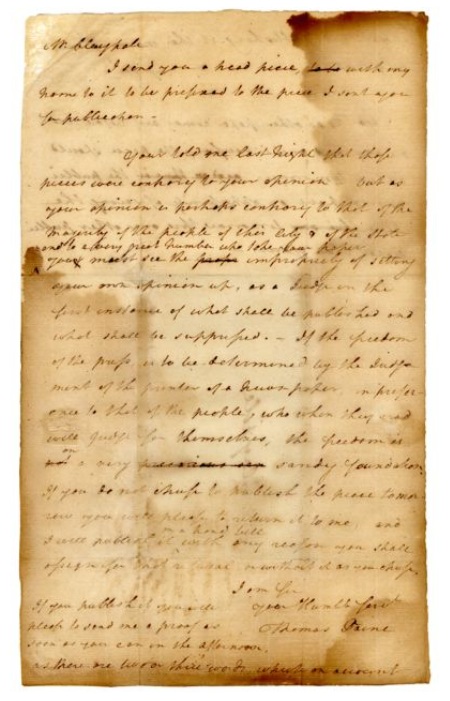 Mr. Claypole
I send you a head piece, to to with my
name to it to be prefixed to the piece I sent you
for publication -
You told me last night that those
pieces were contrary to your opinion but as
your opinion is perhaps contrary to that of the
majority of the people of this City & of the State
and to a very great number who take your paper
you must see the impropriety of setting
your own opinion up, as a Judge in the
first instance of what shall be published and
what shall be suppressed. - If the freedom
of the press is to be determined by the Judge-
ment of the printer of a Newspaper, in prefer-
ence to that of the people, who when they read
will judge for themselves, the freedom is
on a very precarious sandy foundation
If you do not chuse to publish the piece tomor-
row you will please to return it to me, and
in a hand bill
I will publish it with any reason you shall
for refusal, or without it as you chuse
I am Sir
your Humble Servt
Thomas Paine
If you publish it you will
please to send me a proof as
soon as you can in the afternoon,
as there are two or three words which on account